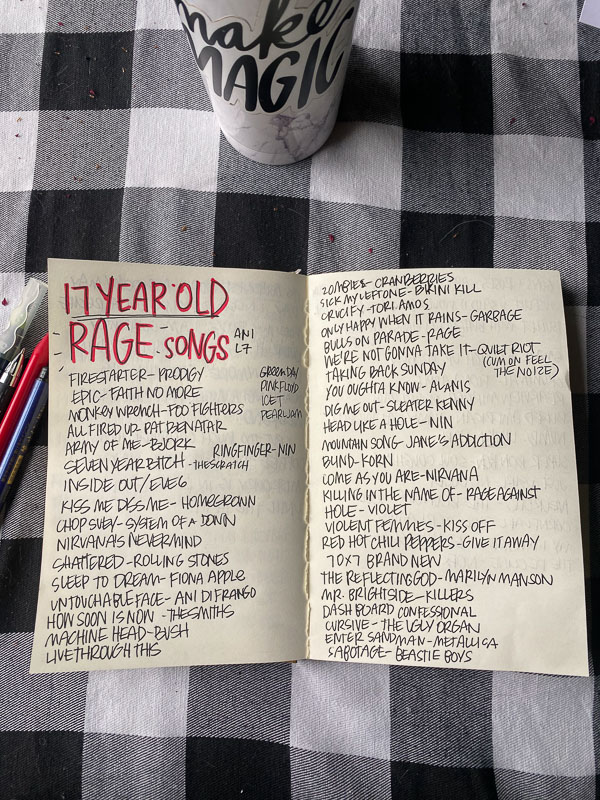 make
MAGIC
17 YEAR OLD
RAGE SONGS
ANI
L7
FIRESTARTER - PRODIGY
EPIC - FAITH NO MORE
MONKEY WRENCH - FOO FIGHTERS
ALL FIRED UP - PAT BENATAR
ARMY OF ME - BJORK
SEVEN YEAR BITCH - THE SCRATCH
INSIDE OUT / EVE 6
KISS ME DISS ME - HOMEGROWN
CHOP SUEY - SYSTEM OF A DOWN
NIRVANA'S NEVERMIND
SHATTERED - ROLLING STONES
SLEEP TO DREAM - FIONA APPLE
UNTOUCHABLE FACE - ANI DIFRANCO
HOW SOON IS NOW - THE SMITHS
MACHINE HEAD - BUSH
LIVE THROUGH THIS
GREEN DAY
PINK FLOYD
ICE T
PEARL JAM
RINGFINGER - NIN
ZOMBIES - CRANBERRIES
SICK MY LEFT ONE - BIKINI KILL
CRUCIFY - TORI AMOS
ONLY HAPPY WHEN IT RAINS - GARBAGE
BULLS ON PARADE - RAGE
WE'RE NOT GONNA TAKE IT - QUIET RIOT
(CUM ON FEEL
THE NOIZE)
TAKING BACK SUNDAY
YOU OUGHTA KNOW - ALANIS
DIG ME OUT - SLEATER KENNY
HEAD LIKE A HOLE - NIN
MOUNTAIN SONG - JANE'S ADDICTION
BLIND - KORN
COME AS YOU ARE - NIRVANA
KILLING IN THE NAME OF - RAGE AGAINST
HOLE - VIOLET
VIOLENT FEMMES - KISS OFF
RED HOT CHILI PEPPERS - GIVE IT AWAY
70X7 BRAND NEW
THE REFLECTING GOD - MARILYN MANSON
MR. BRIGHTSIDE - KILLERS
DASHBOARD CONFESSIONAL
CURSIVE - THE UGLY ORGAN
ENTER SANDMAN - METALLICA
SABOTAGE - BEASTIE BOYS